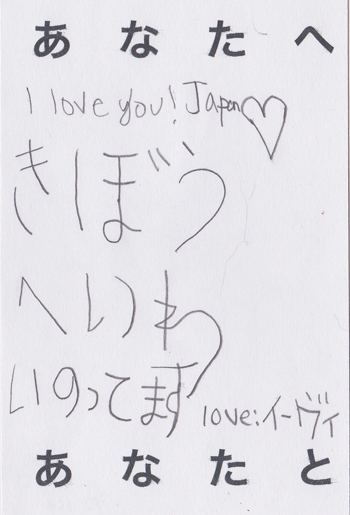 あなたへ
I love you! Japan♡
きぼう
へいわ
いのってます
love:イードヴィ
あなたと